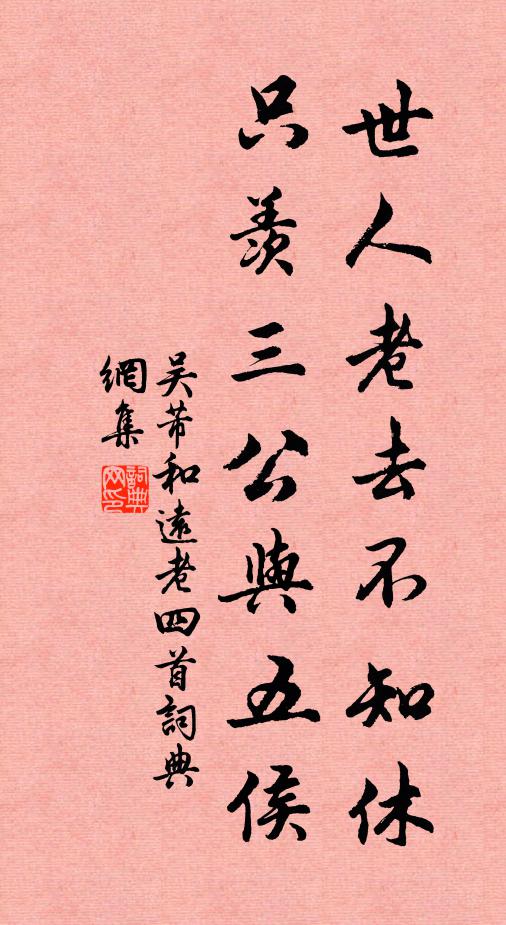 世人老去不知休
只羨三公與五侯
吴芾和遠老四首詞典
網集
詞典
网印